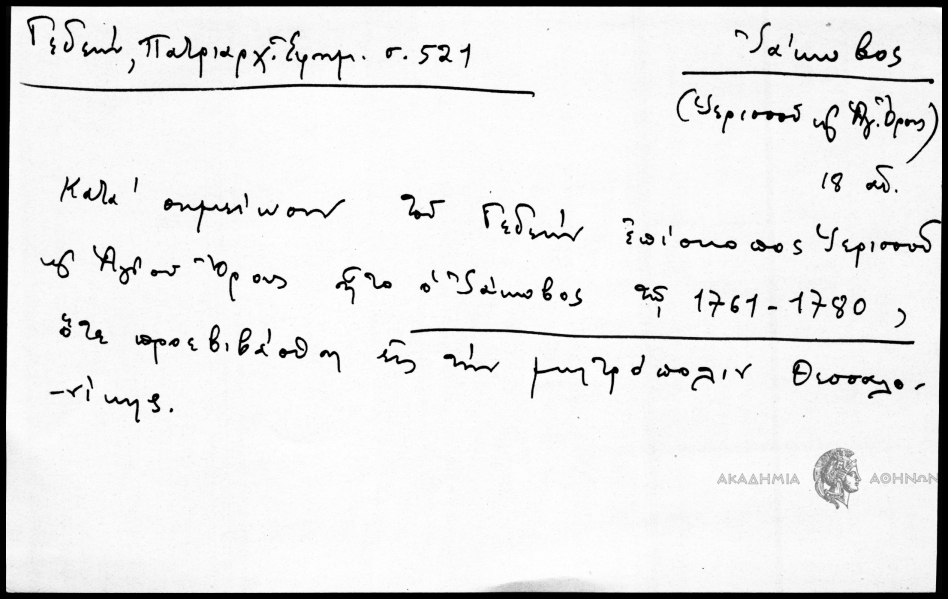 Γεδεών, Πατριαρχ. Ἐφημ. σ. 521
Ἰάκωβος
(Ἱερισσοῦ κ Ἁγ. Ὄρους)
18 αἰ.
Κατὰ σημείωσιν τοῦ Γεδεών ἐπίσκοπος Ἱερισσοῦ
κ Ἁγίου Ὄρους ἦτο ὁ Ἰάκωβος τῷ 1761-1780,
ὅτε προεβιβάσθη εἰς τὴν μητρόπολιν Θεσσαλο-
-νίκης.
ΑΚΑΔΗΜΙΑ ΑΘΗΝΩΝ